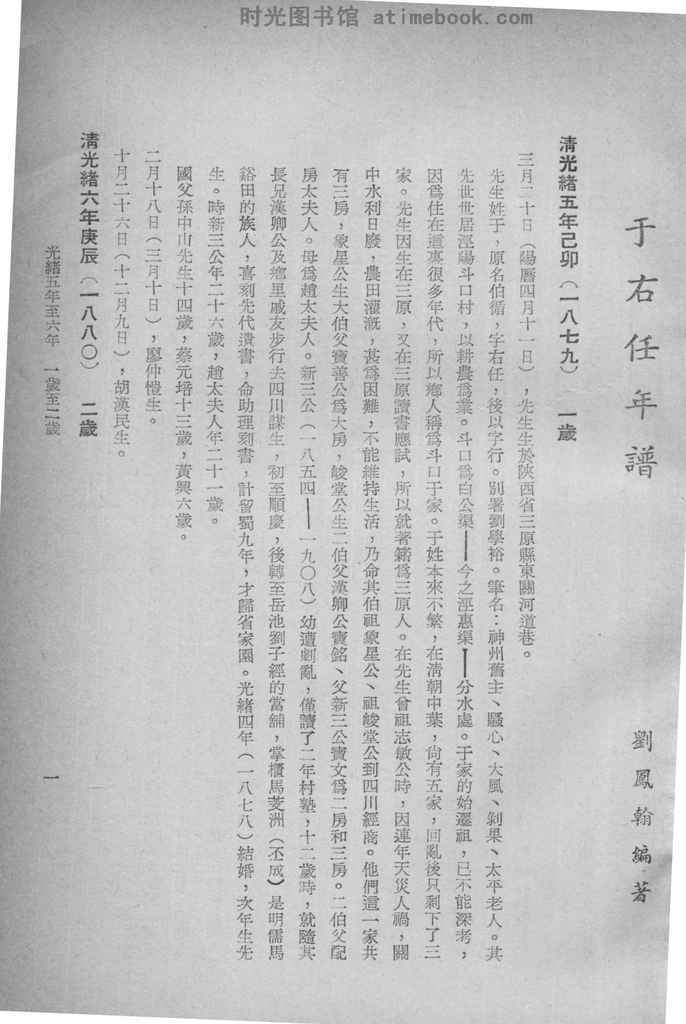 时光图书馆 atimebook.com
于右任年譜
劉鳳翰編著
清光緒五年己卯（一八七九） 一歲
三月二十日（陽曆四月十一日），先生生於陝西省三原縣東關河道巷。
先生姓于，原名伯循，字右任，後以字行。別署劉學裕。筆名：神州舊主、騷心、大風、剝果、太平老人。其
先世世居涇陽斗口村，以耕農為業。斗口為白公渠——今之涇惠渠——分水處。于家的始遷祖，已不能深考，
因為住在這裏很多年代，所以鄉人稱為斗口于家。于姓本來不繁，在清朝中葉，尙有五家，回亂後只剩下了三
家。先生因生在三原，又在三原讀書應試，所以就著籍為三原人。在先生曾祖志敏公時，因連年天災人禍，關
中水利日廢，農田灌漑，甚為困難，不能維持生活，乃命其伯祖象星公、祖峻堂公到四川經商。他們這一家共
有三房，象星公生大伯父寶善公為大房，峻堂公生二伯父漢卿公寶銘、父新三公寶文為二房和三房。二伯父配
房太夫人。母為趙太夫人。新三公（一八五四——一九〇八）幼遭劇亂，僅讀了二年村塾，十二歲時，就隨其
長兄漢卿公及鄉里戚友步行去四川謀生，初至順慶，後轉至岳池劉子經的當舖，掌櫃馬芰洲（丕成）是明儒馬
谿田的族人，喜刻先代遺書，命助理刻書，計留蜀九年，才歸省家園。光緒四年（一八七八）結婚，次年生先
生。時新三公年二十六歲，趙太夫人年二十一歲。
國父孫中山先生十四歲，蔡元培十三歲，黃興六歲。
二月十八日（三月十日），廖仲愷生。
十月二十六日（十二月九日），胡漢民生。
清光緒六年庚辰（一八八〇） 二歲
光緒五年至六年 一歲至二歲
一